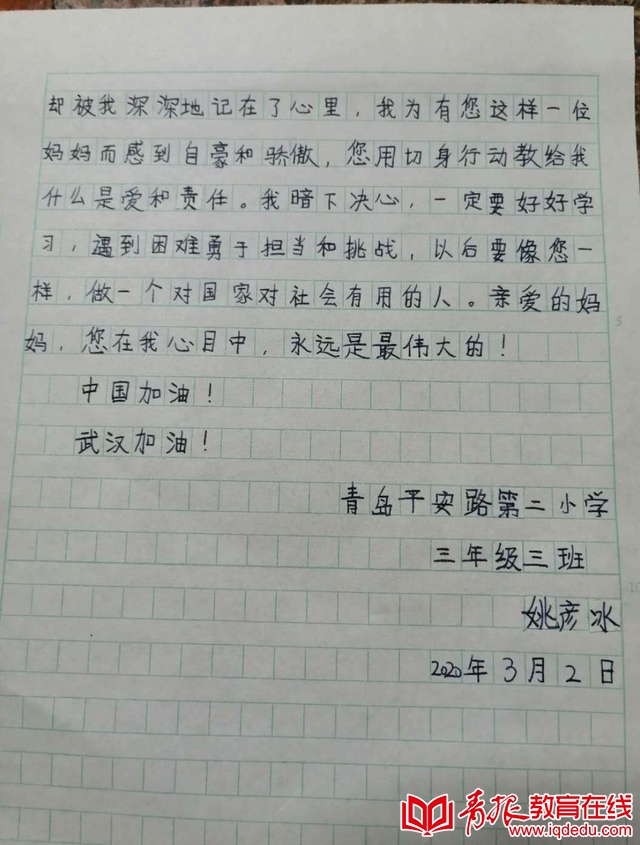 却被我深深地记在了心里，我为有您这样一位
妈妈而感到自豪和骄傲，您用切身行动教给我
什么是爱和责任。我暗下决心，一定要好好学
习，遇到困难勇于担当和挑战，以后要像您一
样，做一个对国家对社会有用的人。亲爱的妈
妈，您在我心目中，永远是最伟大的！
中国加油！
武汉加油！
青岛平安路第二小学
三年级三班
姚彦冰
2020年3月2日
5
10
青报教育在线
www.iqdedu.com